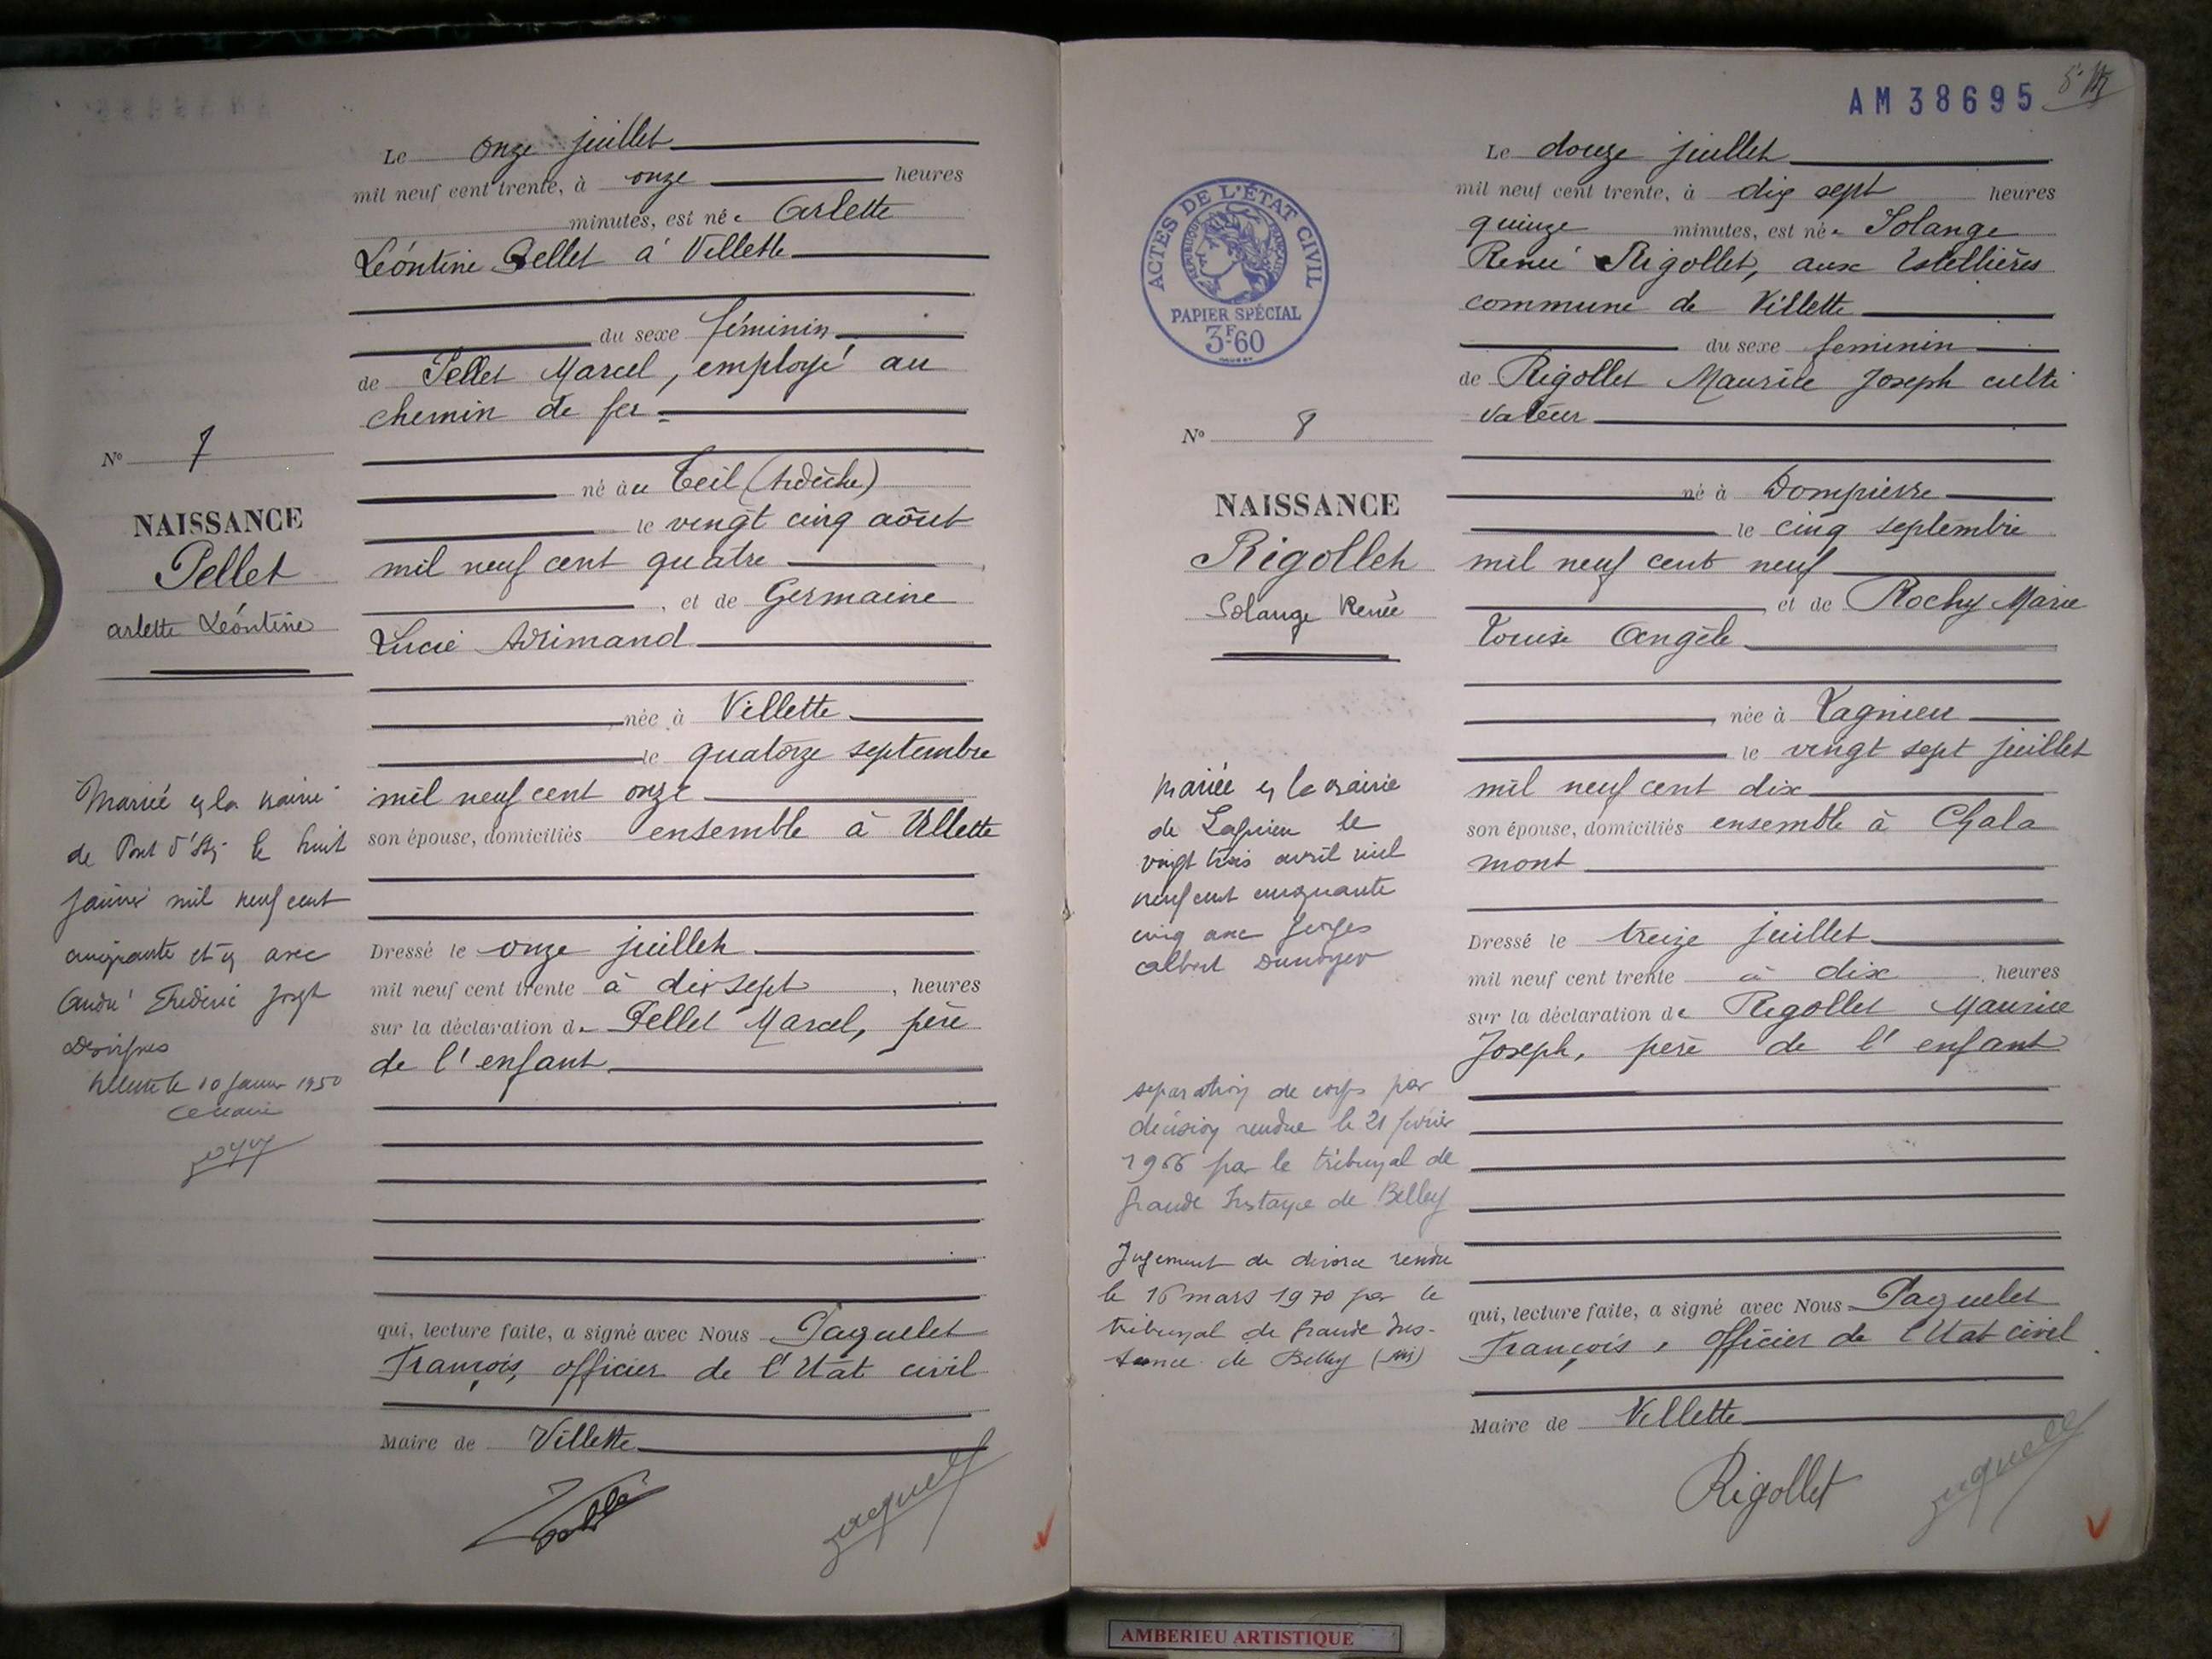 Le onze juillet
mil neuf cent trente, à onze heures
minutes, est née Arlette
Léóntine Pellet à Villette
du sexe féminin
de Pellet Marcel, employé au
chemin de fer
né au Teil (Ardèche)
le vingt cinq août
mil neuf cent quatre
, et de Germaine
Lucie Adrimand
née à Villette
le quatorze septembre
mil neuf cent onze
son épouse, domiciliés ensemble à Villette
Dressé le onze juillet
mil neuf cent trente à dix sept, heures
sur la déclaration de Pellet Marcel, père
de l'enfant
qui, lecture faite, a signé avec Nous Paquelet
François, officier de l'Etat civil
Maire de Villette
No 7
NAISSANCE
Pellet
arlette Léóntine
Mariée en la mairie
de Pont d'Ain le huit
janvier mil neuf cent
cinquante et un avec
André Frédéric Joseph
Villette le 10 janvier 1950
Le Maire
AM 38695
Le douze juillet
mil neuf cent trente, à dix sept heures
quinze minutes, est née Solange
Renée Rigollet, aux
commune de Villette
du sexe feminin
de Rigollet Maurice Joseph culti
vateur
né à Dompierre
le cinq septembre
mil neuf cent neuf
et de Rochy Marie
Louise Angèle
, née à Lagnieu
le vingt sept juillet
mil neuf cent dix
son épouse, domiciliés ensemble à Chala
mont
Dressé le treize juillet
mil neuf cent trente à dix heures
sur la déclaration de Rigollet Maurice
Joseph, père de l'enfant
qui, lecture faite, a signé avec Nous Paquelet
François, officier de l'Etat civil
Maire de Villette
Rigollet
ACTES DE L'ÉTAT CIVIL
RÉPUBLIQUE FRANÇAISE
PAPIER SPÉCIAL
3F60
No 8
NAISSANCE
Rigollet
Solange Renée
Mariée en la mairie
de Lagnieu le
vingt trois avril mil
neuf cent cinquante
cinq avec Georges
Albert Dunoyer
separation de corps par
décision rendue le 21 février
1966 par le tribunal de
Grande Instance de Belley
Jugement de divorce rendu
le 16 mars 1970 par le
tribunal de Grande Ins-
tance de Belley (Ain)
AMBERIEU ARTISTIQUE